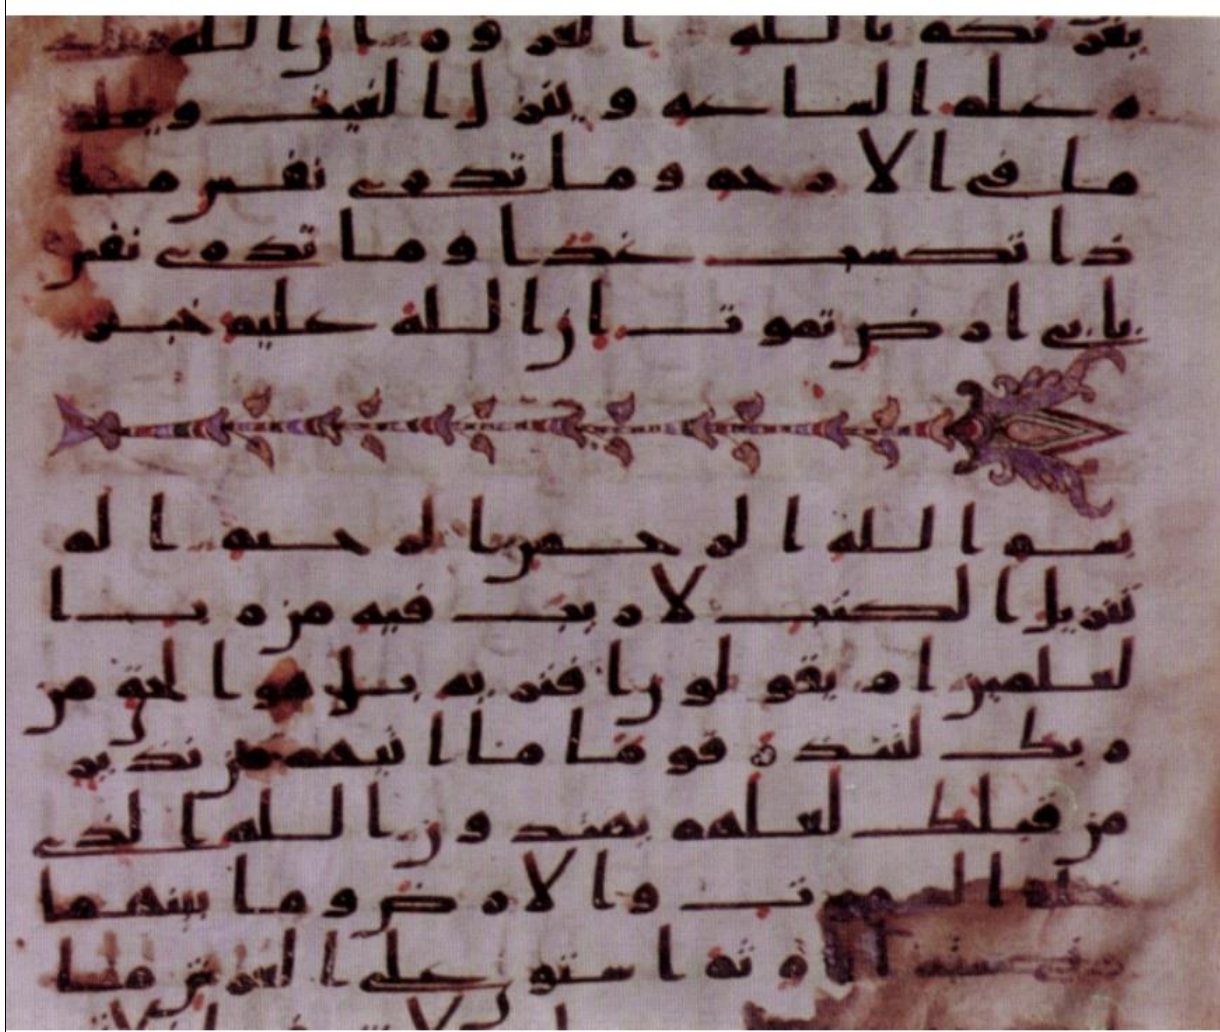 يغرنكم بالله الغرور ان الله عند
ه علم الساعة وينزل الغيث ويعلم
ما فى الارحم وما تدرى نفس ما
ذا تكسب غدا وما تدرى نفس
باى ارض تموت ان الله عليم خبير
بسم الله الرحمن الرحيم الم
تنزيل الكتب لا ريب فيه من رب ا
لعلمين ام يقولون افتريه بل هو الحق من
ربك لتنذر قوما ما اتيهم من نذير
من قبلك لعلهم يهتدون الله الذى
خلق السموت والارض وما بينهما
فى ستة ايام ثم استوى على العرش ما